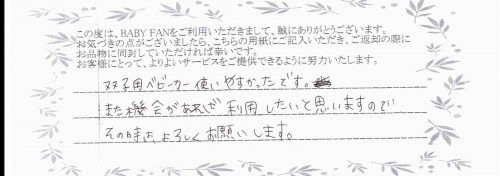 この度は、BABY FANをご利用いただきまして、誠にありがとうございます。
お気づきの点がございましたら、こちらの用紙にご記入いただき、ご返却の際に
お品物に同封していただければ幸いです。
お客様にとって、よりよいサービスをご提供できるように努力いたします。
双子用ベビーカー使いやすかったです。
また機会があれば利用したいと思いますので
その時は、よろしくお願いします。